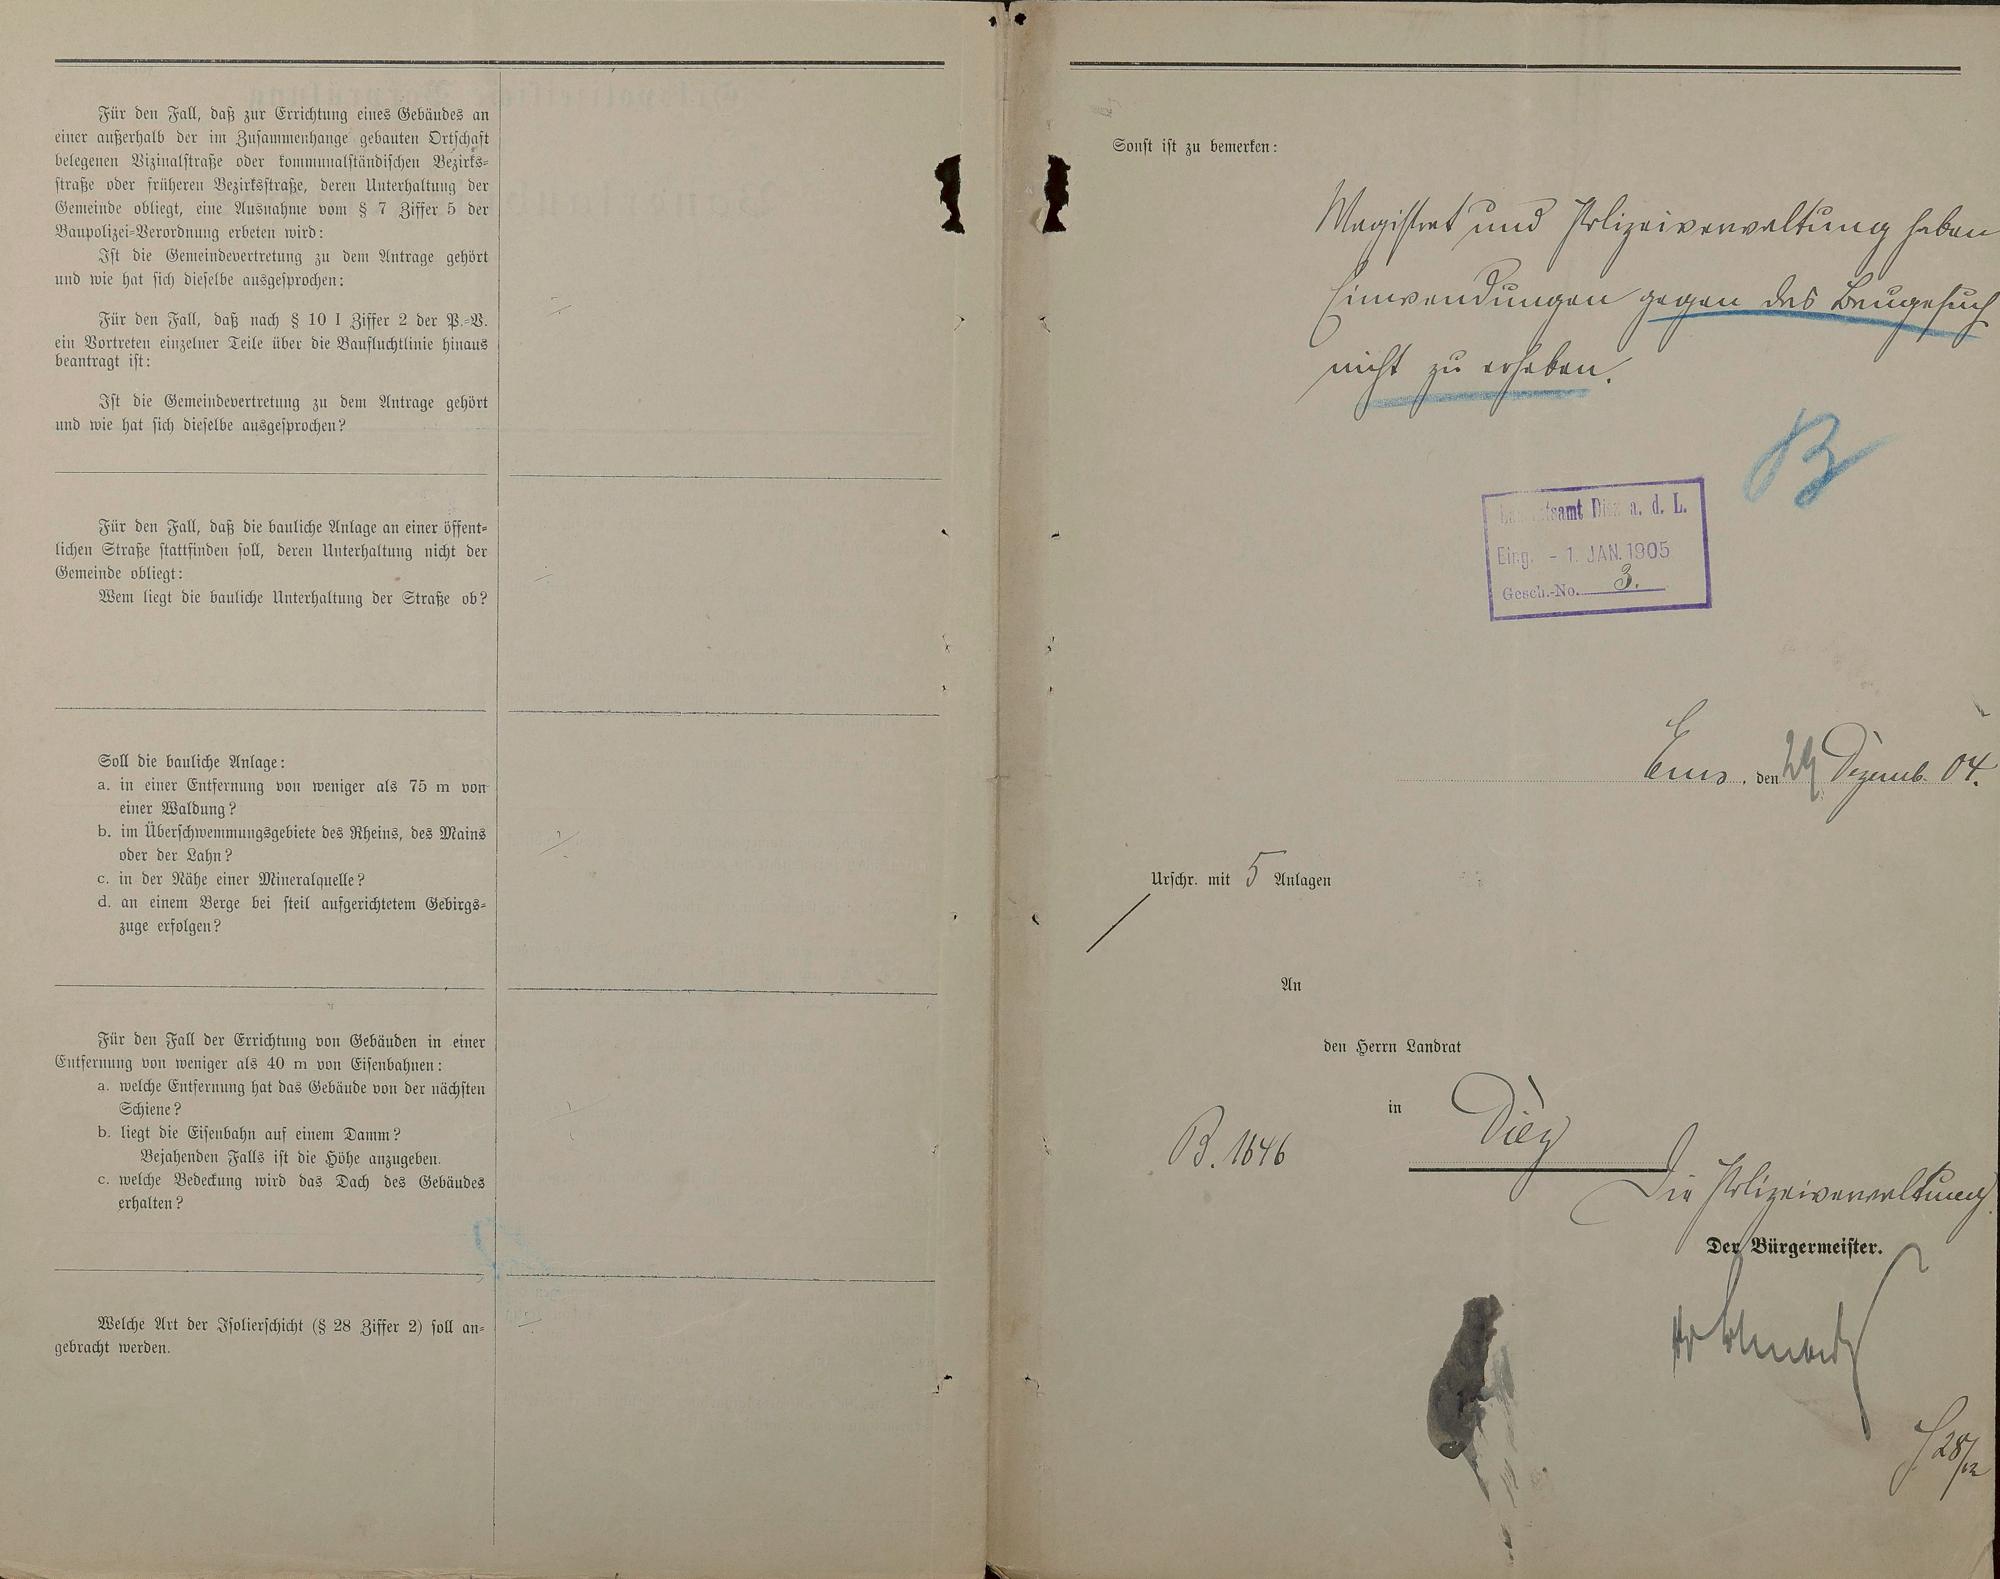 Für den Fall, daß zur Errichtung eines Gebäudes an
einer außerhalb der im Zusammenhange gebauten Ortschaft
belegenen Vizinalstraße oder kommunalständischen Bezirks-
straße oder früheren Bezirksstraße, deren Unterhaltung der
Gemeinde obliegt, eine Ausnahme vom § 7 Ziffer 5 der
Baupolizei-Verordnung erbeten wird:
Ist die Gemeindevertretung zu dem Antrage gehört
und wie hat sich dieselbe ausgesprochen:
Für den Fall, daß nach § 10 I Ziffer 2 der P.-V.
ein Vortreten einzelner Teile über die Baufluchtlinie hinaus
beantragt ist:
Ist die Gemeindevertretung zu dem Antrage gehört
und wie hat sich dieselbe ausgesprochen?
Für den Fall, daß die bauliche Anlage an einer öffent-
lichen Straße stattfinden soll, deren Unterhaltung nicht der
Gemeinde obliegt:
Wem liegt die bauliche Unterhaltung der Straße ob?
Soll die bauliche Anlage:
a. in einer Entfernung von weniger als 75 m von
einer Waldung?
b. im Überschwemmungsgebiete des Rheins, des Mains
oder der Lahn?
c. in der Nähe einer Mineralquelle?
d. an einem Berge bei steil aufgerichtetem Gebirgs-
zuge erfolgen?
Für den Fall der Errichtung von Gebäuden in einer
Entfernung von weniger als 40 m von Eisenbahnen:
a. welche Entfernung hat das Gebäude von der nächsten
Schiene?
b. liegt die Eisenbahn auf einem Damm?
Bejahenden Falls ist die Höhe anzugeben.
c. welche Bedeckung wird das Dach des Gebäudes
erhalten?
Welche Art der Isolierschicht (§ 28 Ziffer 2) soll an-
gebracht werden.
Sonst ist zu bemerken:
Magistrat und Polizeiverwaltung haben
Einwendungen gegen das Baugesuch
nicht zu erheben.
B
Landratsamt Diez a. d. L.
Eing. - 1. JAN. 1905
Gesch.-No. 3.
Ems, den 29 Dezemb. 04.
Urschr. mit 5 Anlagen
An
den Herrn Landrat
in Diez
B. 1646
Die Polizeiverwaltung
Der Bürgermeister.
28/12